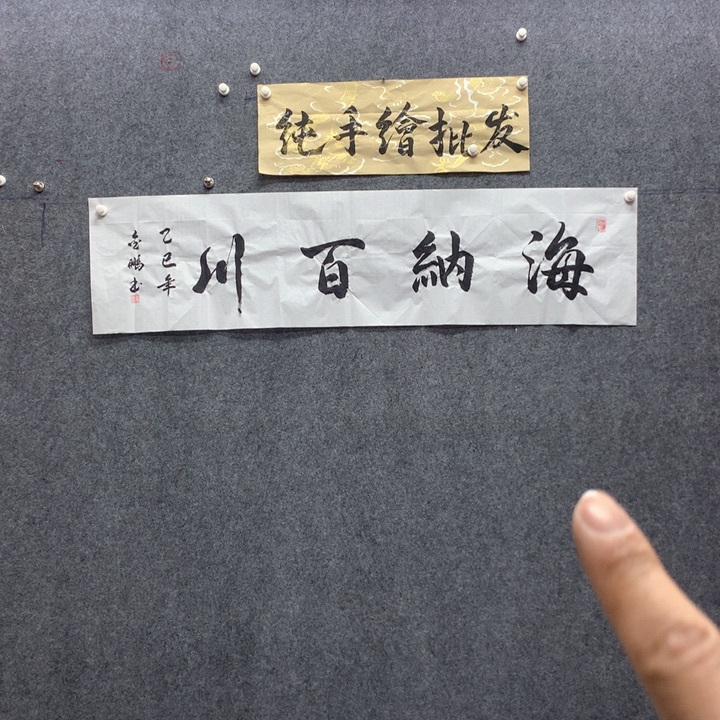 纯手繪批发
海納百川
乙巳年
金鵬书